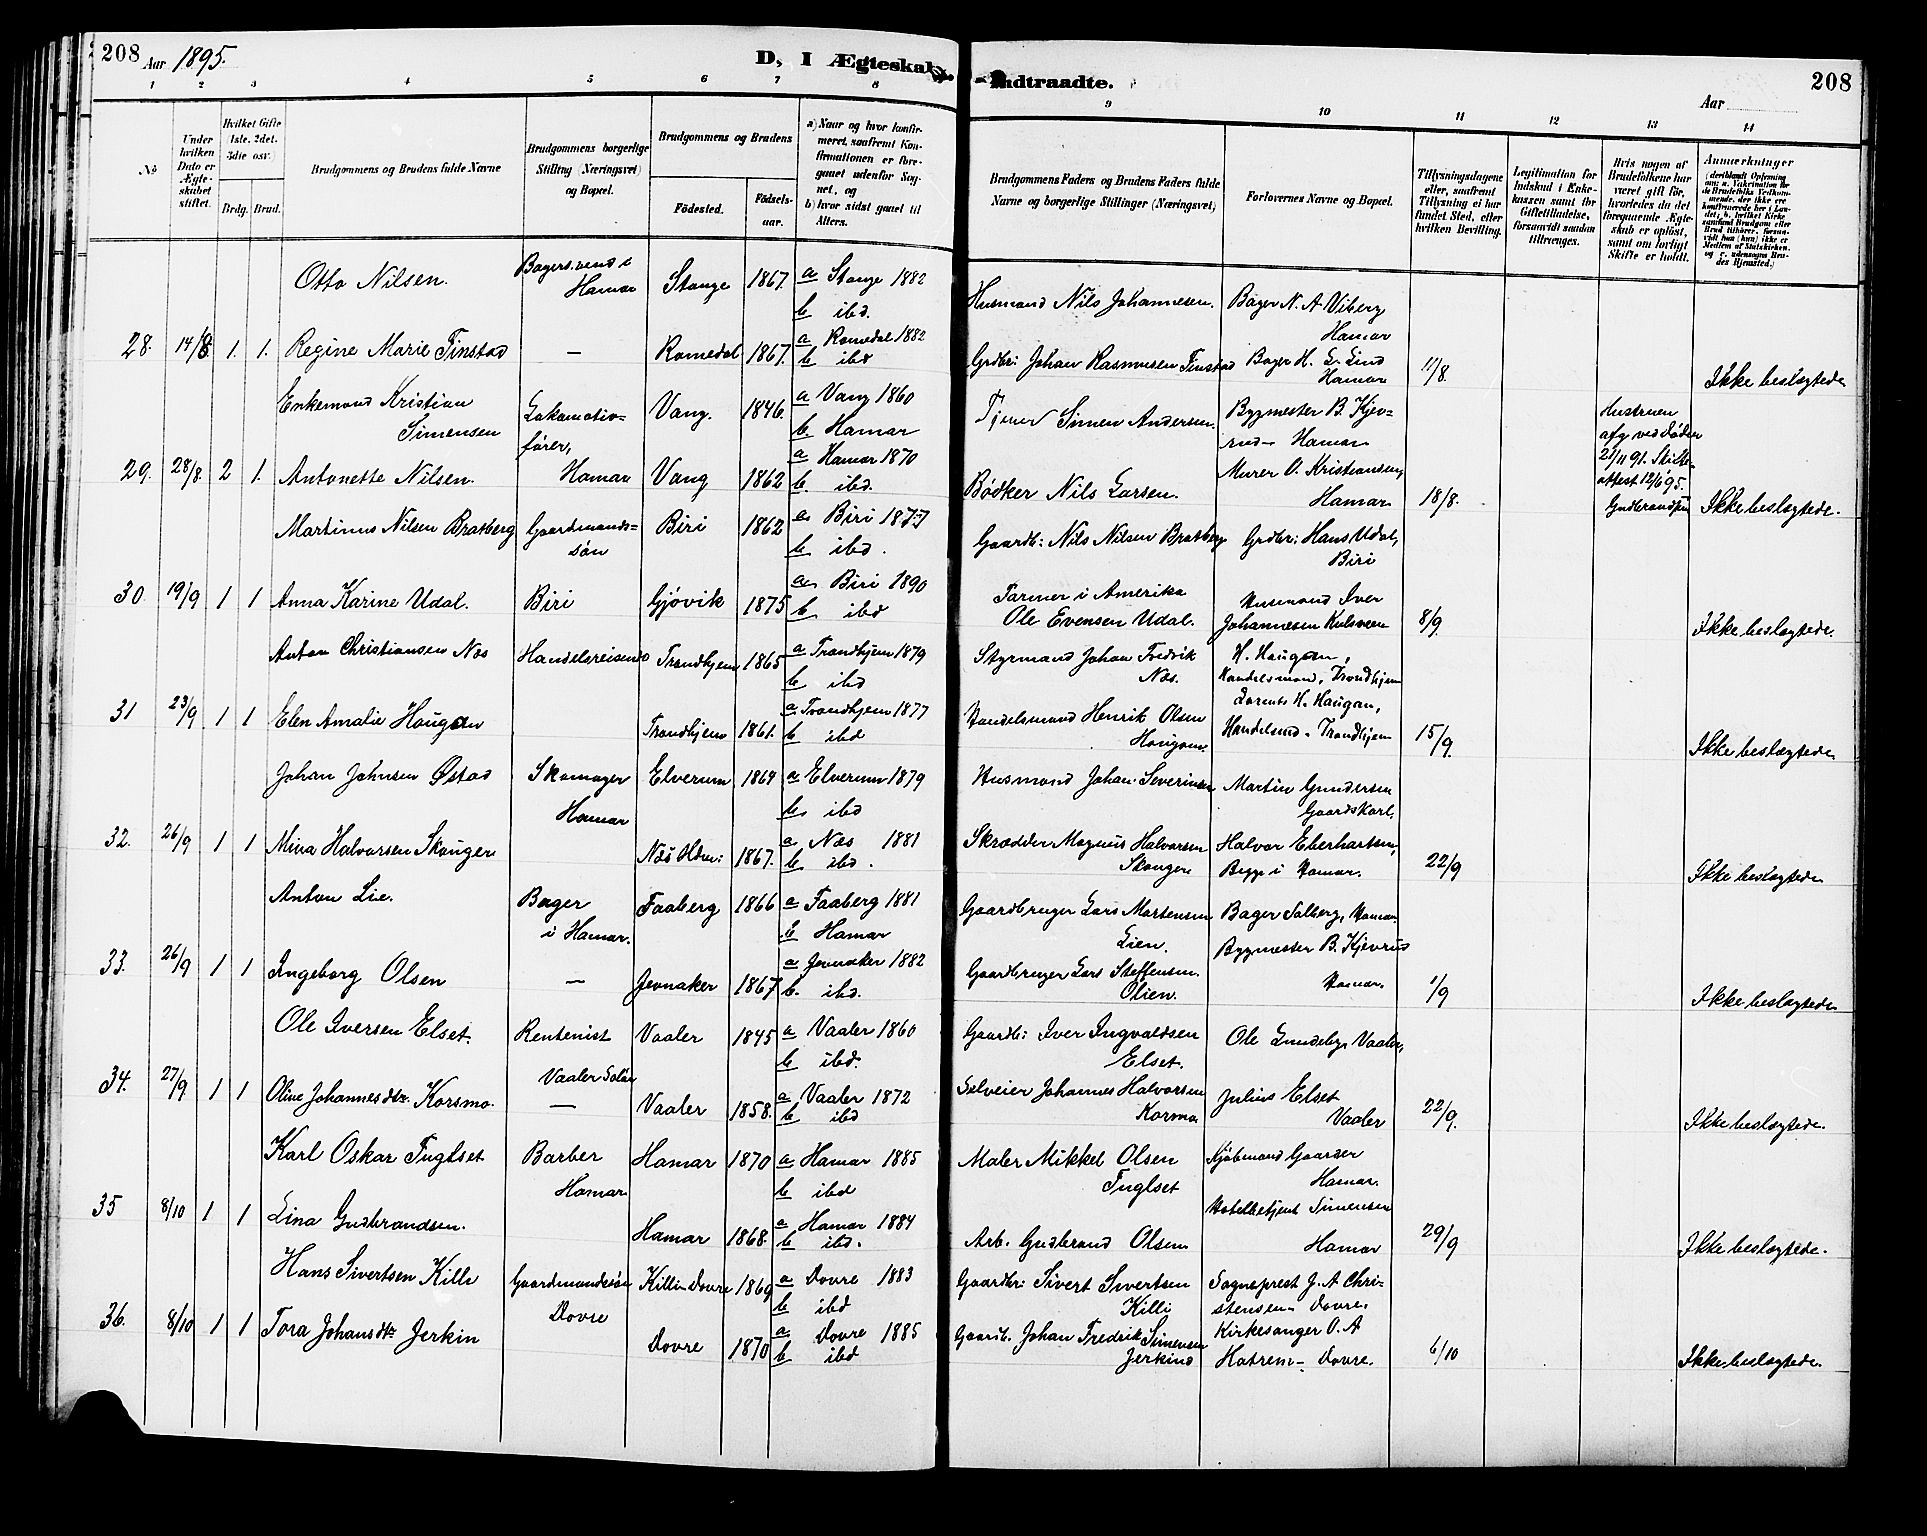 208
Aar 1895.
D, I Ægteskab
Indtraadte.
Aar
208
1 2 3 4 5 6 7 8 9 10 11 12 13 14
No
Under hvilken Dato er Ægteskabet stiftet.
Hvilket Gifte (1ste, 2det, 3die osv.)
Brdg. Brud.
Brudgommens og Brudens fulde Navne
Brudgommens borgerlige Stilling (Næringsvei) og Bopæl.
Brudgommens og Brudens
Fødested.
Fødselsaar.
a) Naar og hvor konfirmeret, saafremt Konfirmationen er foregaaet udenfor Sognet, og
b) hvor sidst gaaet til Alters.
Brudgommens Faders og Brudens Faders fulde Navne og borgerlige Stillinger (Næringsvei)
Forlovernes Navne og Bopæl.
Tillysningsdagene eller, saafremt Tillysning ei har fundet Sted, efter hvilken Bevilling.
Legitimation for Indskud i Enkekassen samt for Giftetilladelse, forsaavidt saadan tiltrænges.
Hvis nogen af Brudefolkene har været gift før, hvorledes da det foregaaende Ægteskab er opløst, samt om lovligt Skifte er holdt.
Anmærkninger
Otto Nilsen. Bagersvend i Hamar Stange 1867. a Stange 1882 b ibd. Husmand Nils Johannesen. Bager N. A Viberg Hamar
28. 14/8 1. 1. Regine Marie Finstad — Romedal 1867. a Romedal 1882 b ibd Grdbr: Johan Rasmusen Finstad Bager H. L. Lind Hamar 11/8. Ikke beslægtede
Enkemand Kristian Simensen Lokomotivfører, Vang. 1846. a Vang 1860 b Hamar Tjener Simen Andersen. Bygmester B. Kjevrud - Hamar Hustruen afg ved Døden 21/11 91. Skifteattest 12/6 95.
29. 28/8. 2 1. Antonette Nilsen. Hamar Vang 1862 a Hamar 1870 b. ibd. Bødker Nils Larsen. Murer O. Kristiansen, Hamar 18/8. Ikke beslægtede.
Martinus Nilsen Bratberg Gaardmandssøn Biri 1862 a Biri 1877 b ibd. Gaardb: Nils Nilsen Bratberg Grdbr: Hans Udal, Biri
30. 19/9 1 1 Anna Karine Udal. Biri Gjøvik 1875 a Biri 1890 b ibd Farmer i Amerika Ole Evensen Udal. Husmand Iver Johannesen Kulsveen 8/9. Ikke beslægtede.
Anton Christiansen Næs Handelsreisende Trondhjem 1865 a Trondhjem 1879 b ibd Styrmand Johan Fredrik Næs. H. Haugan, Handelsmand, Trondhjem
31 23/9 1 1 Elen Amalie Haugan Trondhjem 1861. a Trondhjem 1877 b ibd Handelsmand Henrik Olsen Haugan. Lorents H. Haugan, Handelsmd. Trondhjem 15/9. Ikke beslægtede
Johan Johnsen Østad Skomager Hamar Elverum 1864 a Elverum 1879 b ibd Husmand Johan Severinsen Martin Gundersen Gaardskarl,
32. 26/9 1 1 Mina Halvorsen Skauger Næs Hdm: 1867. a Næs 1881 b ibd. Skrædder Magnus Halvorsen Skaugen Halvor Eberhartsen, Brygg i Hamar. 22/9 Ikke beslægtede
Anton Lie. Bager i Hamar. Faaberg 1866 a Faaberg 1881 b Hamar Gaardbruger Lars Mortensen Lien. Bager Solberg, Hamar
33. 26/9 1 1 Ingeborg Olsen — Jevnaker 1867 a Jevnaker 1882 b. ibd. Gaardbruger Lars Steffensen Olien. Bygmester B. Kjevrud Hamar. 1/9 Ikke beslægtede
Ole Iversen Elset. Rentenist Vaaler Solør Vaaler 1845 a Vaaler 1860 b ibd. Gaardb: Iver Ingvaldsen Elset. Ole Lundeby, Vaaler,
34. 27/9. 1 1 Oline Johannesdtr. Korsmo. — Vaaler 1858. a Vaaler 1872 b ibd Selveier Johannes Halvorsen Korsmo Julius Elset Vaaler 22/9. Ikke beslægtede.
Karl Oskar Fuglset Barber Hamar Hamar 1870 a Hamar 1885 b ibd Maler Mikkel Olsen Fuglset Kjøbmand Gaarder Hamar.
35 8/10 1 1 Lina Gudbrandsen. Hamar 1868. a Hamar 1884 b ibd. Arb. Gudbrand Olsen Hotelbetjent Simensen Hamar 29/9 Ikke beslægtede.
Hans Sivertsen Killi Gaardmandssøn Dovre Killi Dovre 1869 a Dovre 1883 b ibd Gaardbr: Sivert Sivertsen Killi Sogneprest J. A Christensen - Dovre.
36. 8/10 1 1 Tora Johansdtr Jerkin Dovre 1870 a Dovre 1885 b ibd Gaardb. Johan Fredrik Simensen Jerkind Kirkesanger O. A Hatrem - Dovre. 6/10 Ikke beslægtede.